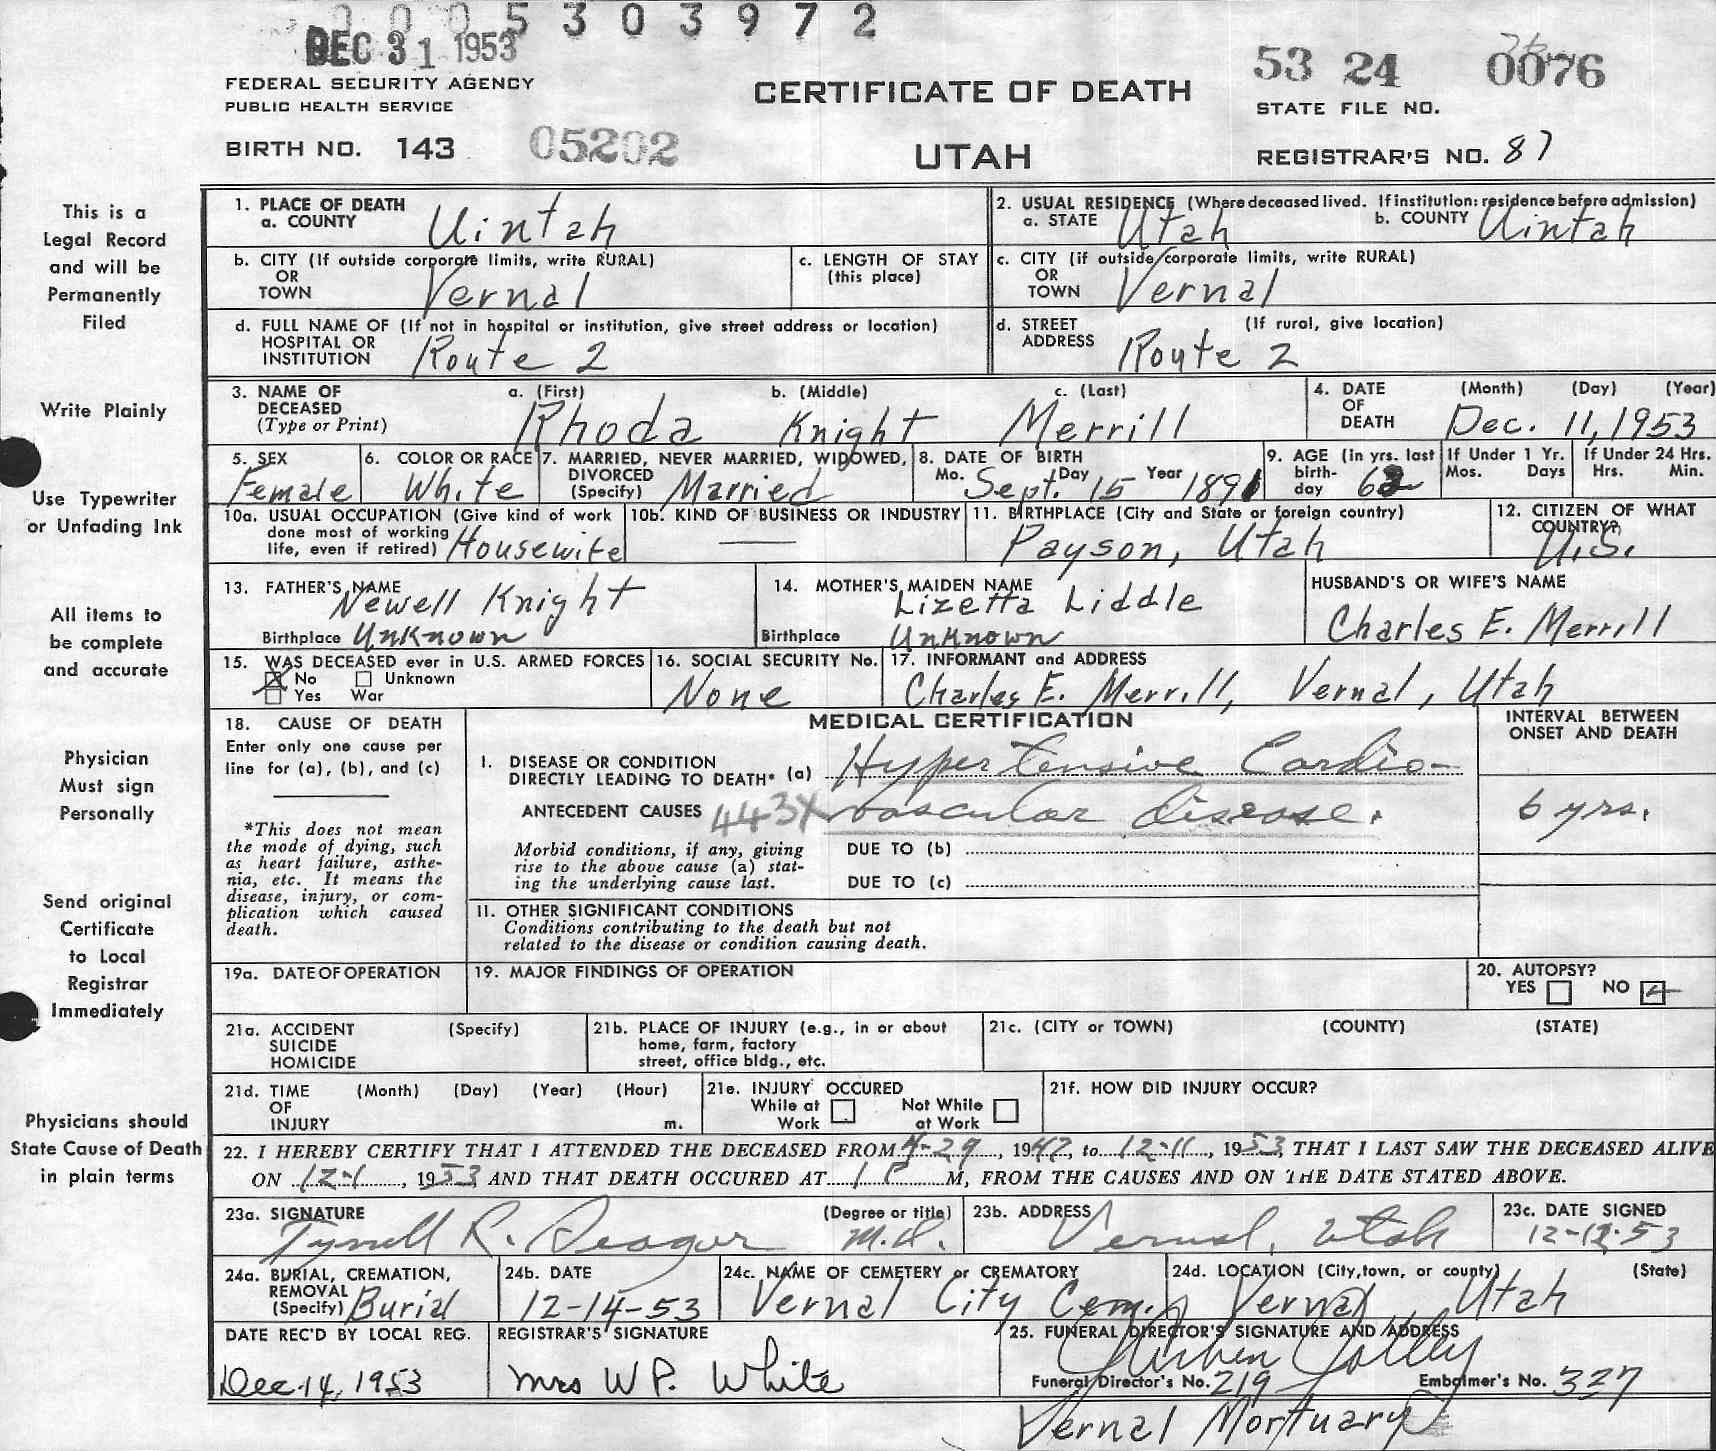 0005303972
DEC 31 1953
53 24 0076
FEDERAL SECURITY AGENCY
PUBLIC HEALTH SERVICE
CERTIFICATE OF DEATH
STATE FILE NO.
BIRTH NO. 143 05202
UTAH
REGISTRAR'S NO. 87
This is a
Legal Record
and will be
Permanently
Filed
Write Plainly
Use Typewriter
or Unfading Ink
All items to
be complete
and accurate
Physician
Must sign
Personally
Send original
Certificate
to Local
Registrar
Immediately
Physicians should
State Cause of Death
in plain terms
1. PLACE OF DEATH
a. COUNTY Uintah
2. USUAL RESIDENCE (Where deceased lived. If institution: residence before admission)
a. STATE Utah b. COUNTY Uintah
b. CITY (If outside corporate limits, write RURAL)
OR
TOWN Vernal
c. LENGTH OF STAY
(this place)
c. CITY (if outside corporate limits, write RURAL)
OR
TOWN Vernal
d. FULL NAME OF (If not in hospital or institution, give street address or location)
HOSPITAL OR
INSTITUTION Route 2
d. STREET (If rural, give location)
ADDRESS Route 2
3. NAME OF
DECEASED
(Type or Print)
a. (First) b. (Middle) c. (Last)
Rhoda Knight Merrill
4. DATE (Month) (Day) (Year)
OF
DEATH Dec. 11, 1953
5. SEX
Female
6. COLOR OR RACE
White
7. MARRIED, NEVER MARRIED, WIDOWED,
DIVORCED
(Specify) Married
8. DATE OF BIRTH
Mo. Sept. Day 15 Year 1891
9. AGE (in yrs. last
birth-
day 62
If Under 1 Yr.
Mos. Days
If Under 24 Hrs.
Hrs. Min.
10a. USUAL OCCUPATION (Give kind of work
done most of working
life, even if retired) Housewife
10b. KIND OF BUSINESS OR INDUSTRY
11. BIRTHPLACE (City and State or foreign country)
Payson, Utah
12. CITIZEN OF WHAT
COUNTRY?
U.S.
13. FATHER'S NAME
Newell Knight
Birthplace Unknown
14. MOTHER'S MAIDEN NAME
Lizetta Liddle
Birthplace Unknown
HUSBAND'S OR WIFE'S NAME
Charles E. Merrill
15. WAS DECEASED ever in U.S. ARMED FORCES
No Unknown
Yes War
16. SOCIAL SECURITY No.
None
17. INFORMANT and ADDRESS
Charles E. Merrill, Vernal, Utah
18. CAUSE OF DEATH
Enter only one cause per
line for (a), (b), and (c)
*This does not mean
the mode of dying, such
as heart failure, asthe-
nia, etc. It means the
disease, injury, or com-
plication which caused
death.
MEDICAL CERTIFICATION
I. DISEASE OR CONDITION
DIRECTLY LEADING TO DEATH* (a) Hypertensive Cardio-
ANTECEDENT CAUSES 443X vascular disease.
Morbid conditions, if any, giving
rise to the above cause (a) stat-
ing the underlying cause last.
DUE TO (b)
DUE TO (c)
INTERVAL BETWEEN
ONSET AND DEATH
6 yrs.
II. OTHER SIGNIFICANT CONDITIONS
Conditions contributing to the death but not
related to the disease or condition causing death.
19a. DATE OF OPERATION
19. MAJOR FINDINGS OF OPERATION
20. AUTOPSY?
YES NO
21a. ACCIDENT (Specify)
SUICIDE
HOMICIDE
21b. PLACE OF INJURY (e.g., in or about
home, farm, factory
street, office bldg., etc.
21c. (CITY or TOWN) (COUNTY) (STATE)
21d. TIME (Month) (Day) (Year) (Hour)
OF
INJURY m.
21e. INJURY OCCURED
While at Work
Not While at Work
21f. HOW DID INJURY OCCUR?
22. I HEREBY CERTIFY THAT I ATTENDED THE DECEASED FROM 4-29, 1947, to 12-11, 1953, THAT I LAST SAW THE DECEASED ALIVE
ON 12-1, 1953, AND THAT DEATH OCCURED AT 1 P M, FROM THE CAUSES AND ON THE DATE STATED ABOVE.
23a. SIGNATURE (Degree or title)
Tyrrell R. Seager M.D.
23b. ADDRESS
Vernal, Utah
23c. DATE SIGNED
12-12-53
24a. BURIAL, CREMATION,
REMOVAL
(Specify) Burial
24b. DATE
12-14-53
24c. NAME OF CEMETERY or CREMATORY
Vernal City Cem.
24d. LOCATION (City, town, or county) (State)
Vernal, Utah
DATE REC'D BY LOCAL REG.
Dec. 14, 1953
REGISTRAR'S SIGNATURE
Mrs W P. White
25. FUNERAL DIRECTOR'S SIGNATURE AND ADDRESS
Funeral Director's No. 219 Embalmer's No. 327
Vernal Mortuary